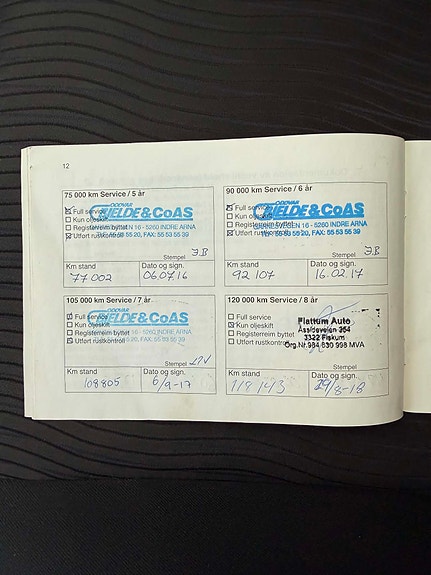 12
75 000 km Service / 5 år
Full service
Kun oljeskift
Registerreim byttet
Utført rustkontroll
ODDVAR
GJELDE & Co AS
16 - 5260 INDRE ARNA
Tlf. 55 53 55 20, FAX: 55 53 55 39
Stempel JB
Km stand
Dato og sign.
77 002
06.07.16
90 000 km Service / 6 år
Full service
Kun oljeskift
Registerreim byttet
Utført rustkontroll
ODDVAR
GJELDE & Co AS
16 - 5260 INDRE ARNA
Tlf. 55 53 55 20, FAX: 55 53 55 39
Stempel JB
Km stand
Dato og sign.
92 107
16.02.17
105 000 km Service / 7 år
Full service
Kun oljeskift
Registerreim byttet
Utført rustkontroll
ODDVAR
GJELDE & Co AS
16 - 5260 INDRE ARNA
55 53 55 20, FAX: 55 53 55 39
Stempel
Km stand
Dato og sign.
108805
6/9-17
120 000 km Service / 8 år
Full service
Kun oljeskift
Registerreim byttet
Utført rustkontroll
Flattum Auto
Åssideveien 354
3322 Fiskum
Org.Nr.984 630 998 MVA
Km stand
Dato og sign.
118143
29/8-18